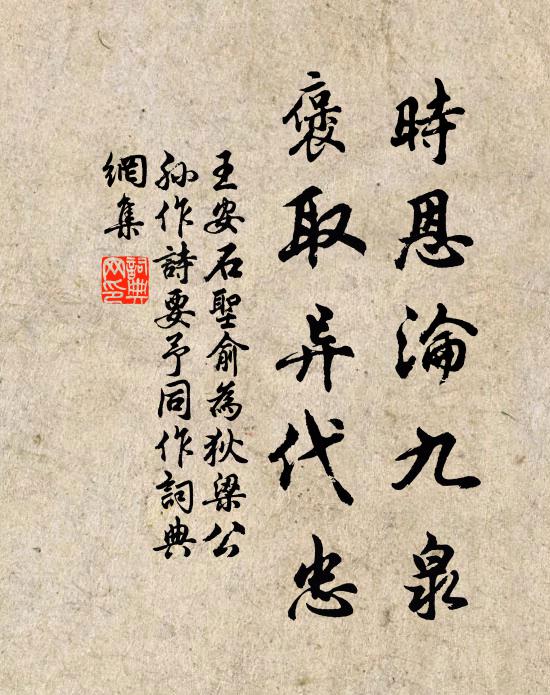 時恩淪九泉
褒取异代忠
王安石聖俞為狄梁公
孫作詩要予同作詞典
網集
詞典
网印